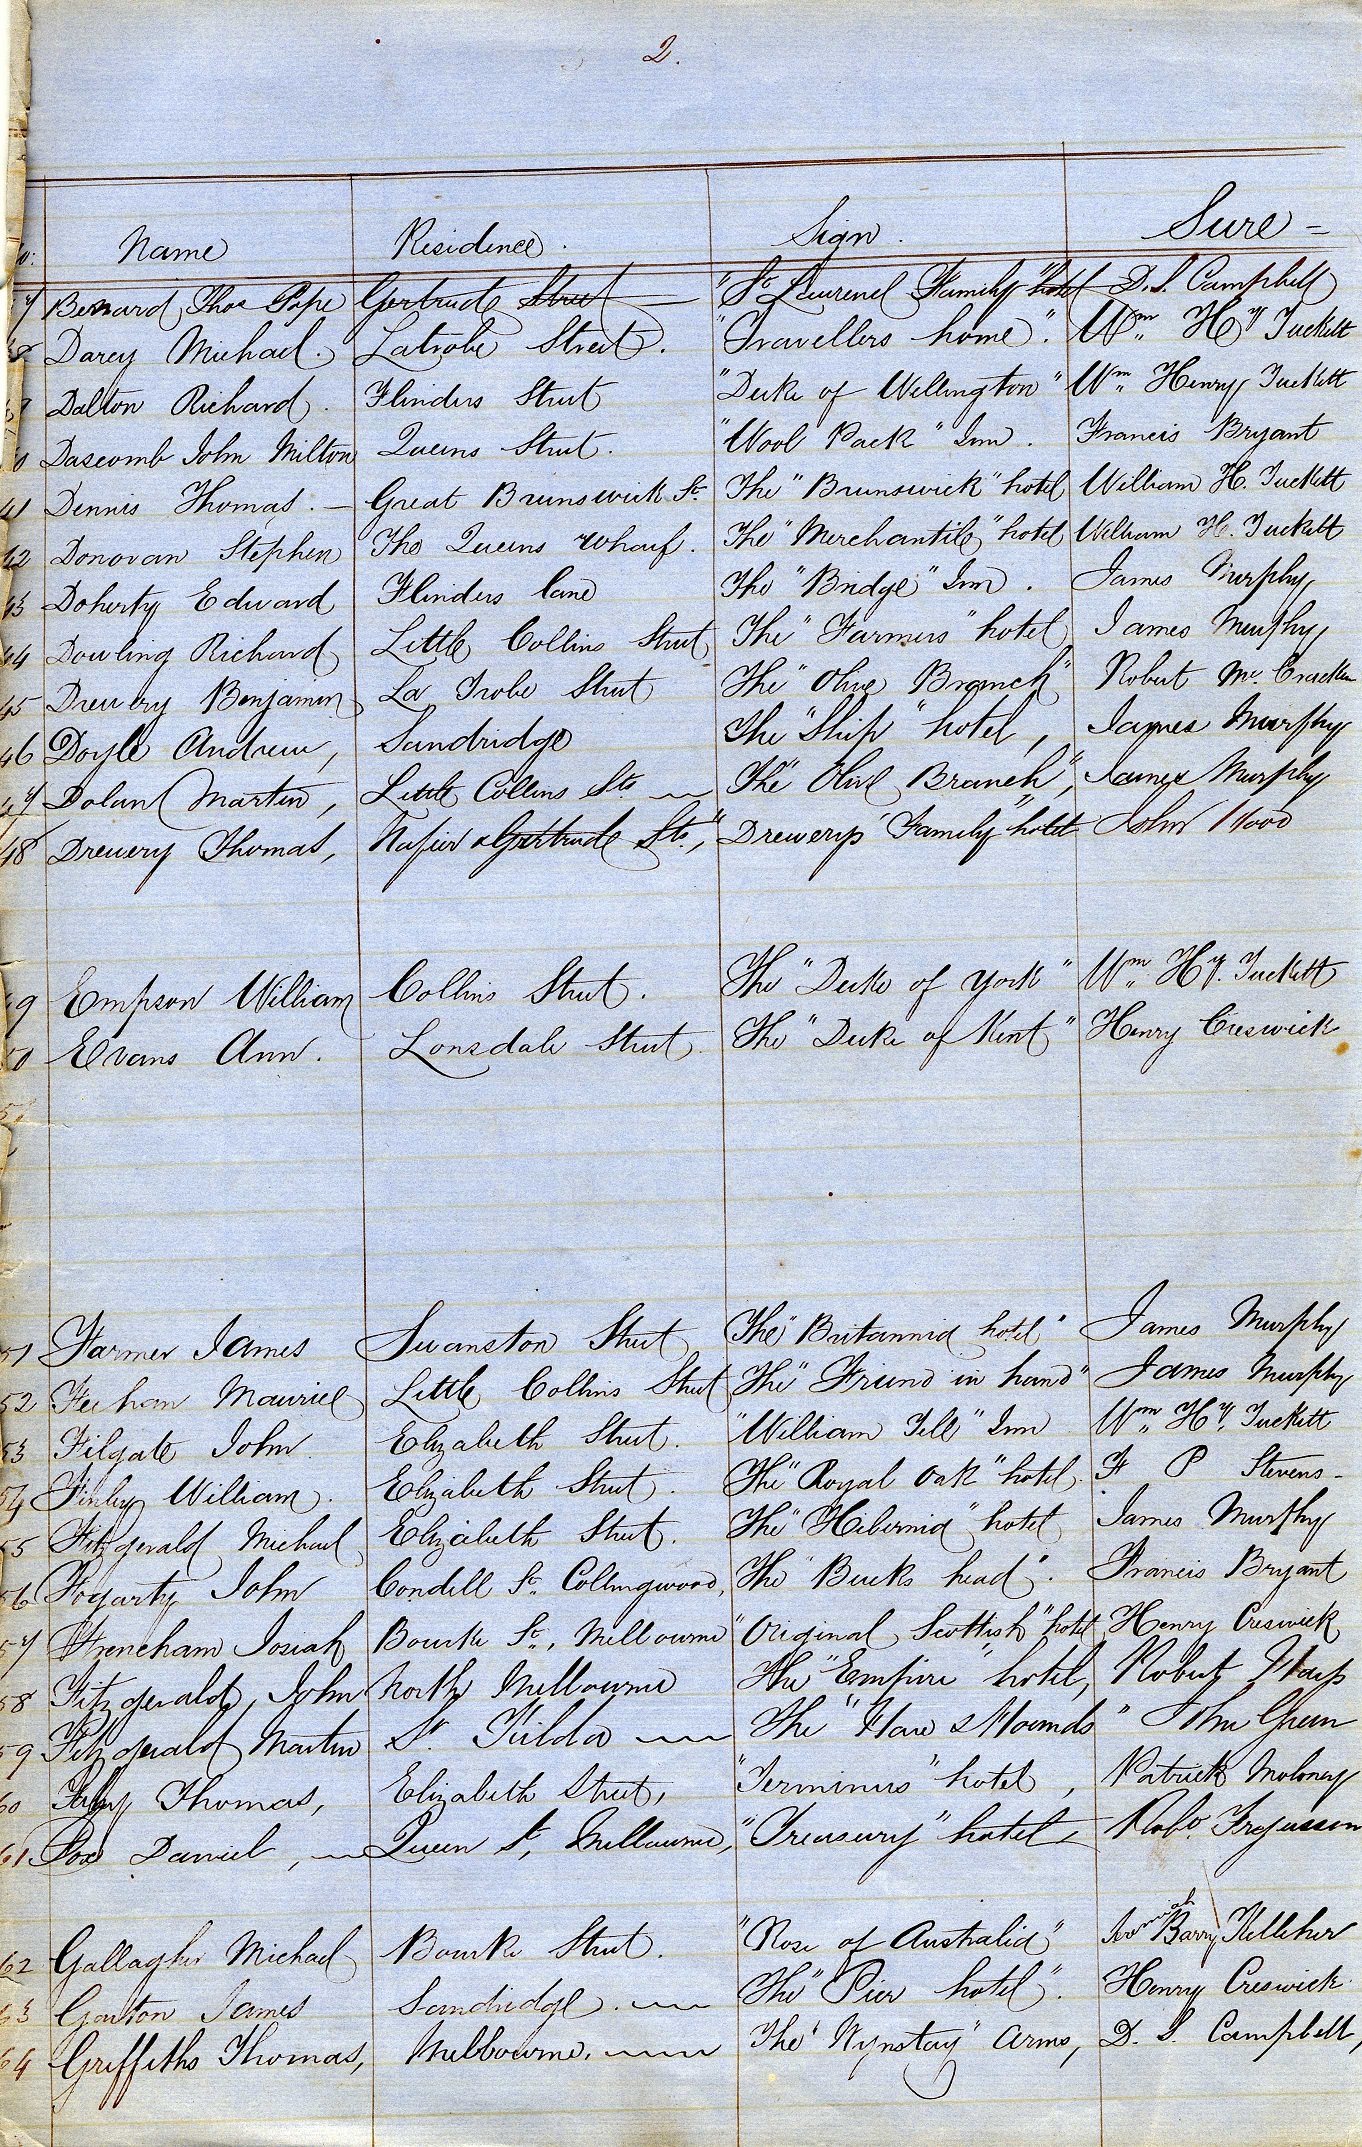 2.
Name Residence. Sign. Sure-
Bernard Thos Pope Gertrude Street "St Laurence Family" hotel D. S. Campbell
38 Darcy Michael. Latrobe Street. "Travellers home". Wm Hy Tuckett
Dalton Richard. Flinders Street "Duke of Wellington" Wm Henry Tuckett
Dascomb John Milton Queens Street. "Wool Pack" Inn. Francis Bryant
41 Dennis Thomas. — Great Brunswick St. The "Brunswick" hotel William H. Tuckett
42 Donovan Stephen The Queens Wharf. The "Merchantile" hotel William H. Tuckett
43 Doherty Edward Flinders lane The "Bridge" Inn. James Murphy
44 Dowling Richard Little Collins Street The "Farmers" hotel James Murphy
45 Drewery Benjamin La Trobe Street The "Olive Branch" Robert Mc. Cracken
46 Doyle Andrew, Sandridge The "Ship" hotel, James Murphy
47 Dolan Martin, Little Collins St. The "Olive Branch", James Murphy
48 Drewery Thomas, Napier & Gertrude Sts., "Drewery's Family" hotel John Hood
49 Empson William Collins Street. The "Duke of York" Wm Hy. Tuckett
50 Evans Ann. Lonsdale Street. The "Duke of Kent" Henry Creswick
51
51 Farmer James Swanston Street The "Britannia hotel" James Murphy
52 Feehan Maurice Little Collins Street The "Friend in hand" James Murphy
53 Filgate John Elizabeth Street. "William Tell" Inn Wm Hy. Tuckett
54 Finlay William. Elizabeth Street. The "Royal Oak" hotel. F P Stevens-
55 Fitzgerald Michael Elizabeth Street. The "Hibernia" hotel James Murphy
56 Fogarty John Condell St. Collingwood, The "Bucks head". Francis Bryant
57 Frencham Josiah Bourke St., Melbourne "Original Scottish" hotel Henry Creswick
58 Fitzgerald, John North Melbourne The "Empire" hotel, Robert
59 Fitzgerald Martin St. Kilda The "Hare & Hounds" John Green
60 Thomas, Elizabeth Street, "Terminus" hotel, Patrick Moloney
61 Fox Daniel, Queen St, Melbourne, "Treasury" hotel, Robt. Fergusson
62 Gallagher Michael Bourke Street. "Rose of Australia" Barry Kelleher
63 Garton James Sandridge. The "Pier hotel". Henry Creswick
64 Griffiths Thomas, Melbourne. The "Wynstay" Arms, D. S. Campbell,